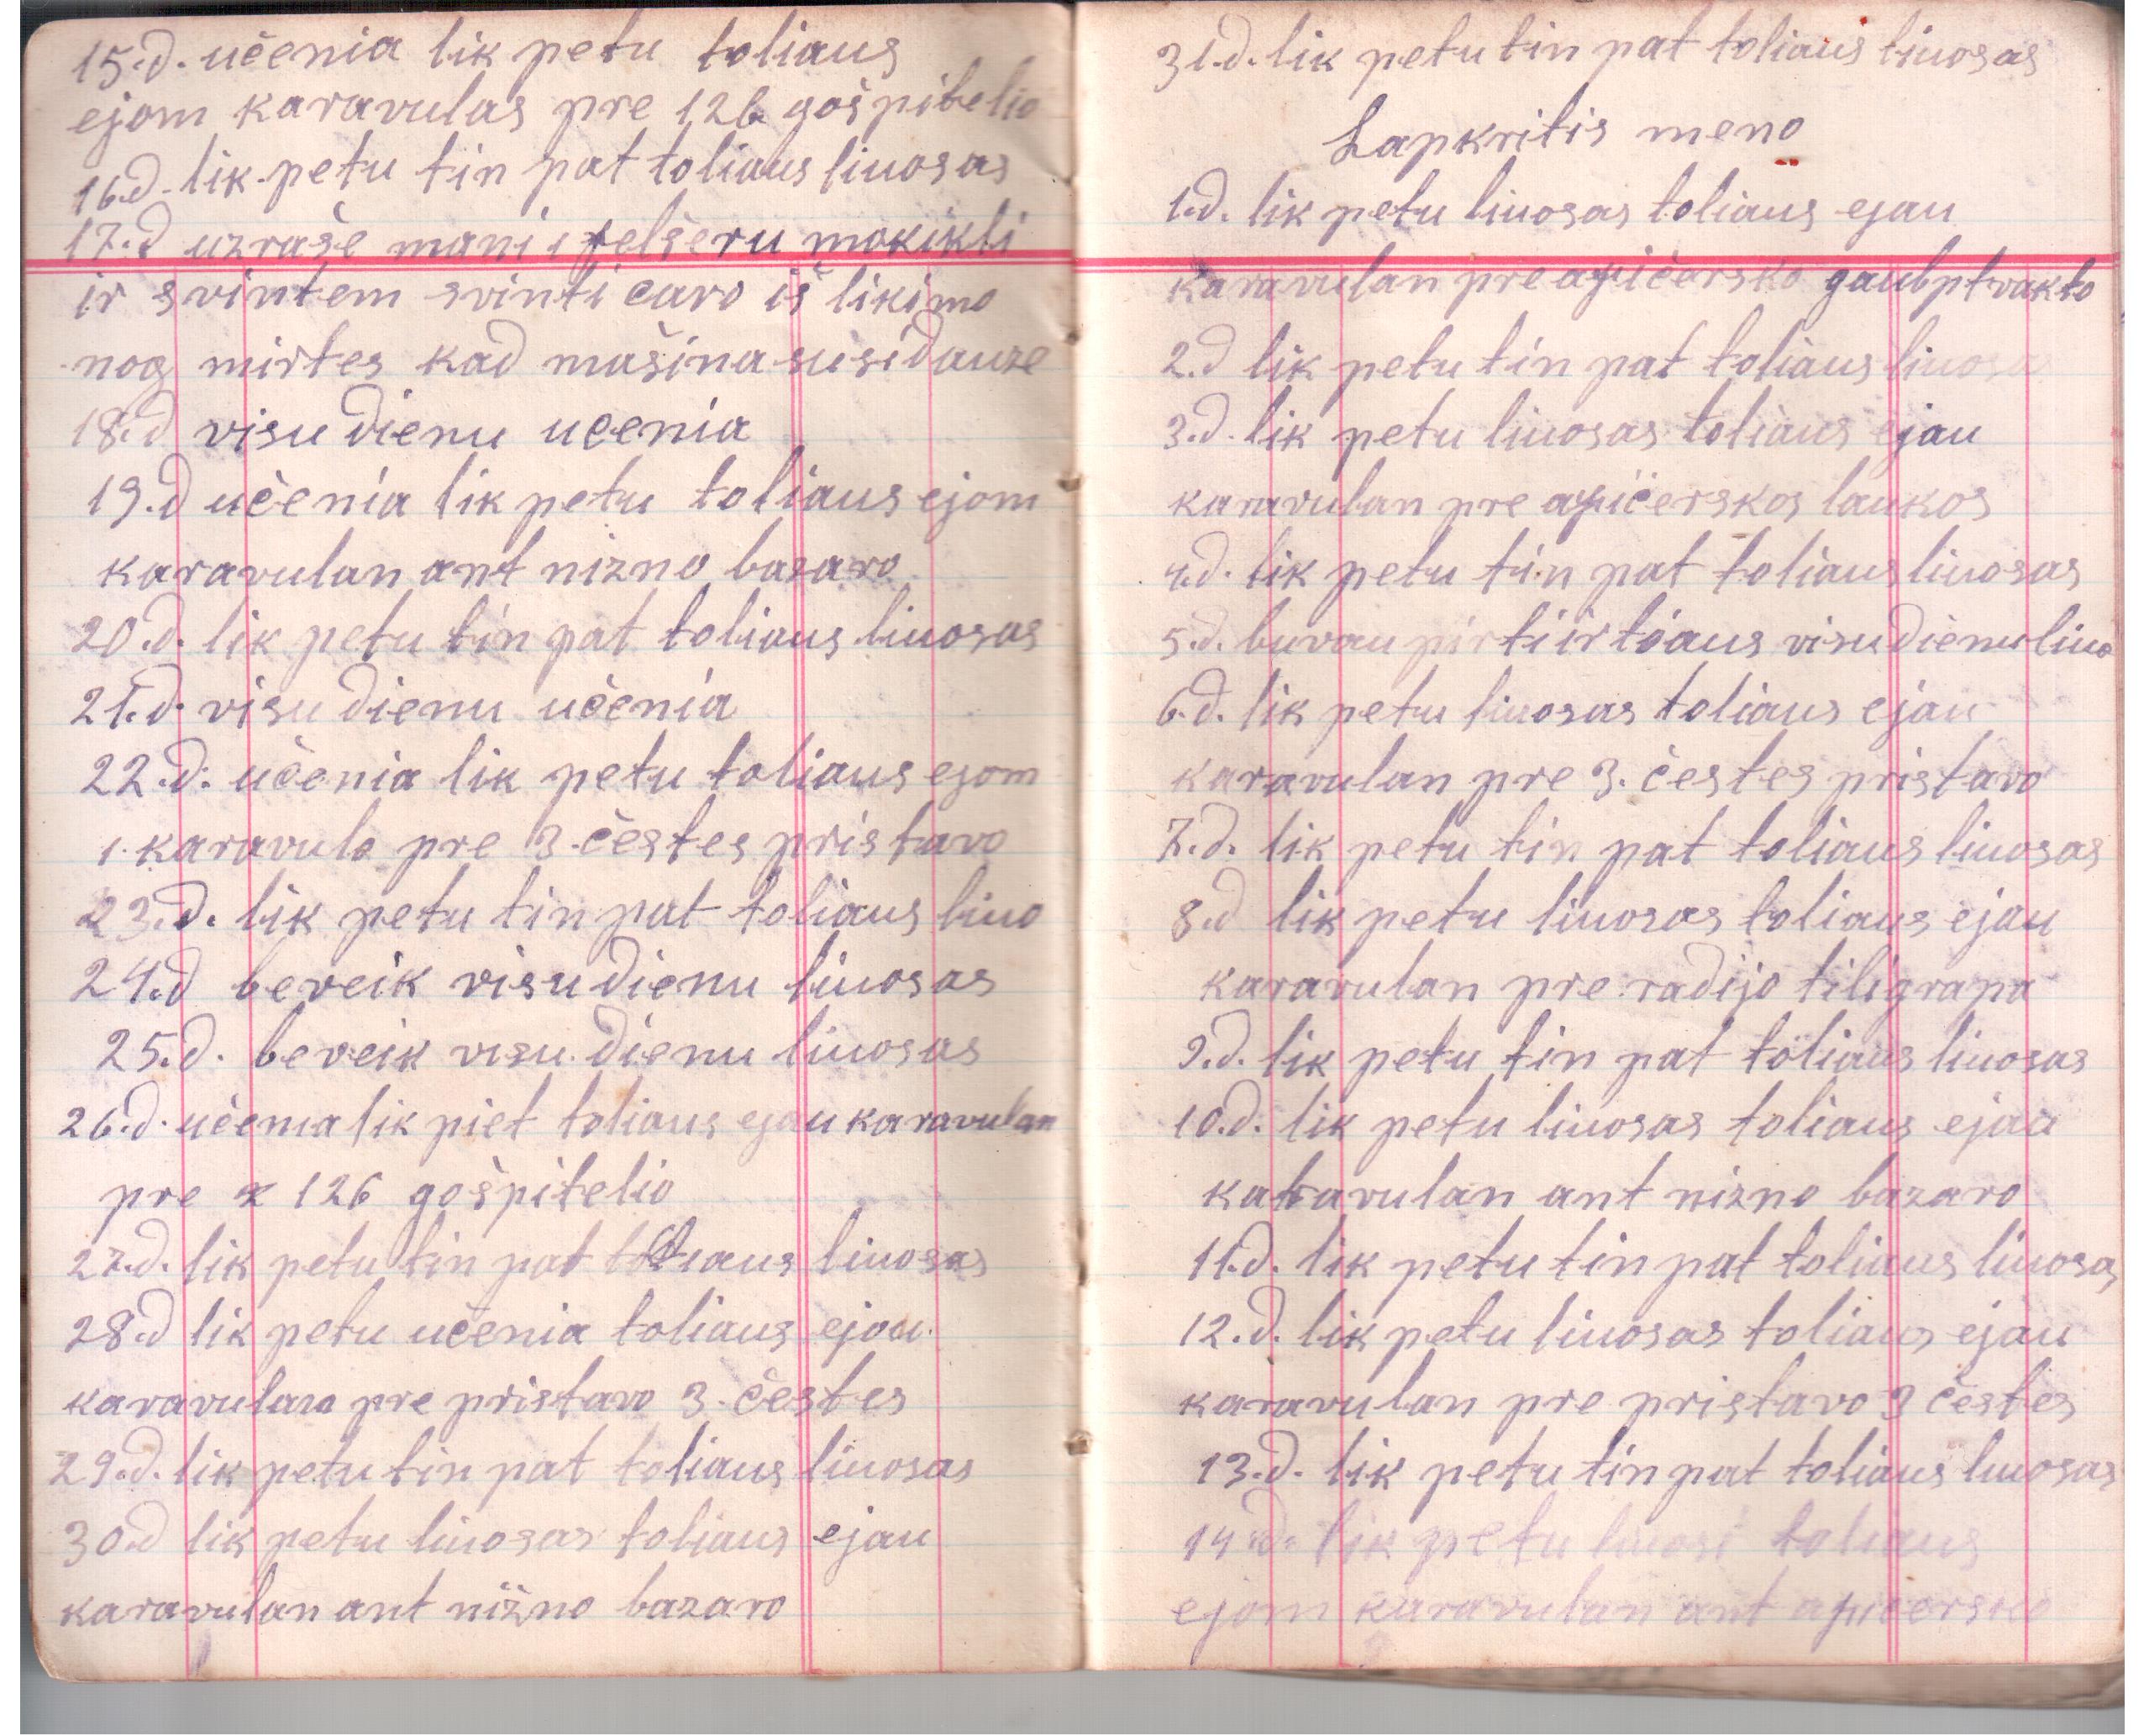 15.d. učenia lik petu toliaus
ejom karavulas pre 126 gošpitelio
16.d. lik petu tin pat toliaus liuosas
17.d uzraše mani i felšeru mokikli
ir svintem svinti caro iš likimo
nog mirtes kad mašina susidauze
18.d visu dienu ucenia
19.d učenia lik petu toliaus ejom
karavulan ant nizno bazaro
20.d. lik petu tin pat toliaus liuosas
21.d. visu dienu učenia
22.d. učenia lik petu toliaus ejom
i karavulo pre 3. čestes pristavo
23.d. lik petu tin pat toliaus liuo
24.d beveik visu dienu liuosas
25.d. beveik visu dienu liuosas
26.d. učenia lik piet toliaus ejau karavulan
pre 126 gošpitelio
27.d. lik petu tin pat toliaus liuosas
28.d lik petu učenia toliaus ejau
karavulan pre pristavo 3. čestes
29.d. lik petu tin pat toliaus liuosas
30.d lik petu liuosas toliaus ejau
karavulan ant nižno bazaro
31.d. lik petu tin pat toliaus liuosas
Lapkritis meno
1.d. lik petu liuosas toliaus ejau
karavulan pre apičersko gaubptvakto
2.d lik petu tin pat toliaus liuosa
3.d. lik petu liuosas toliaus ejau
karavulan pre apičerskos laukos
4.d. lik petu tin pat toliaus liuosas
5.d. buvau pirti ir toaus visu dienu liuo
6.d. lik petu liuosas toliaus ejau
karavulan pre 3. čestes pristavo
7.d. lik petu tin pat toliaus liuosas
8.d lik petu liuosas toliaus ejau
karavulan pre radijo tiligrapa
9.d. lik petu tin pat toliaus liuosas
10.d. lik petu liuosas toliaus ejau
karavulan ant nizno bazaro
11.d. lik petu tin pat toliaus liuosas
12.d. lik petu liuosas toliaus ejau
karavulan pre pristavo 3 čestes
13.d. lik petu tin pat toliaus liuosas
14.d. lik petu liuosi toliaus
ejom karavulan ant apičersko